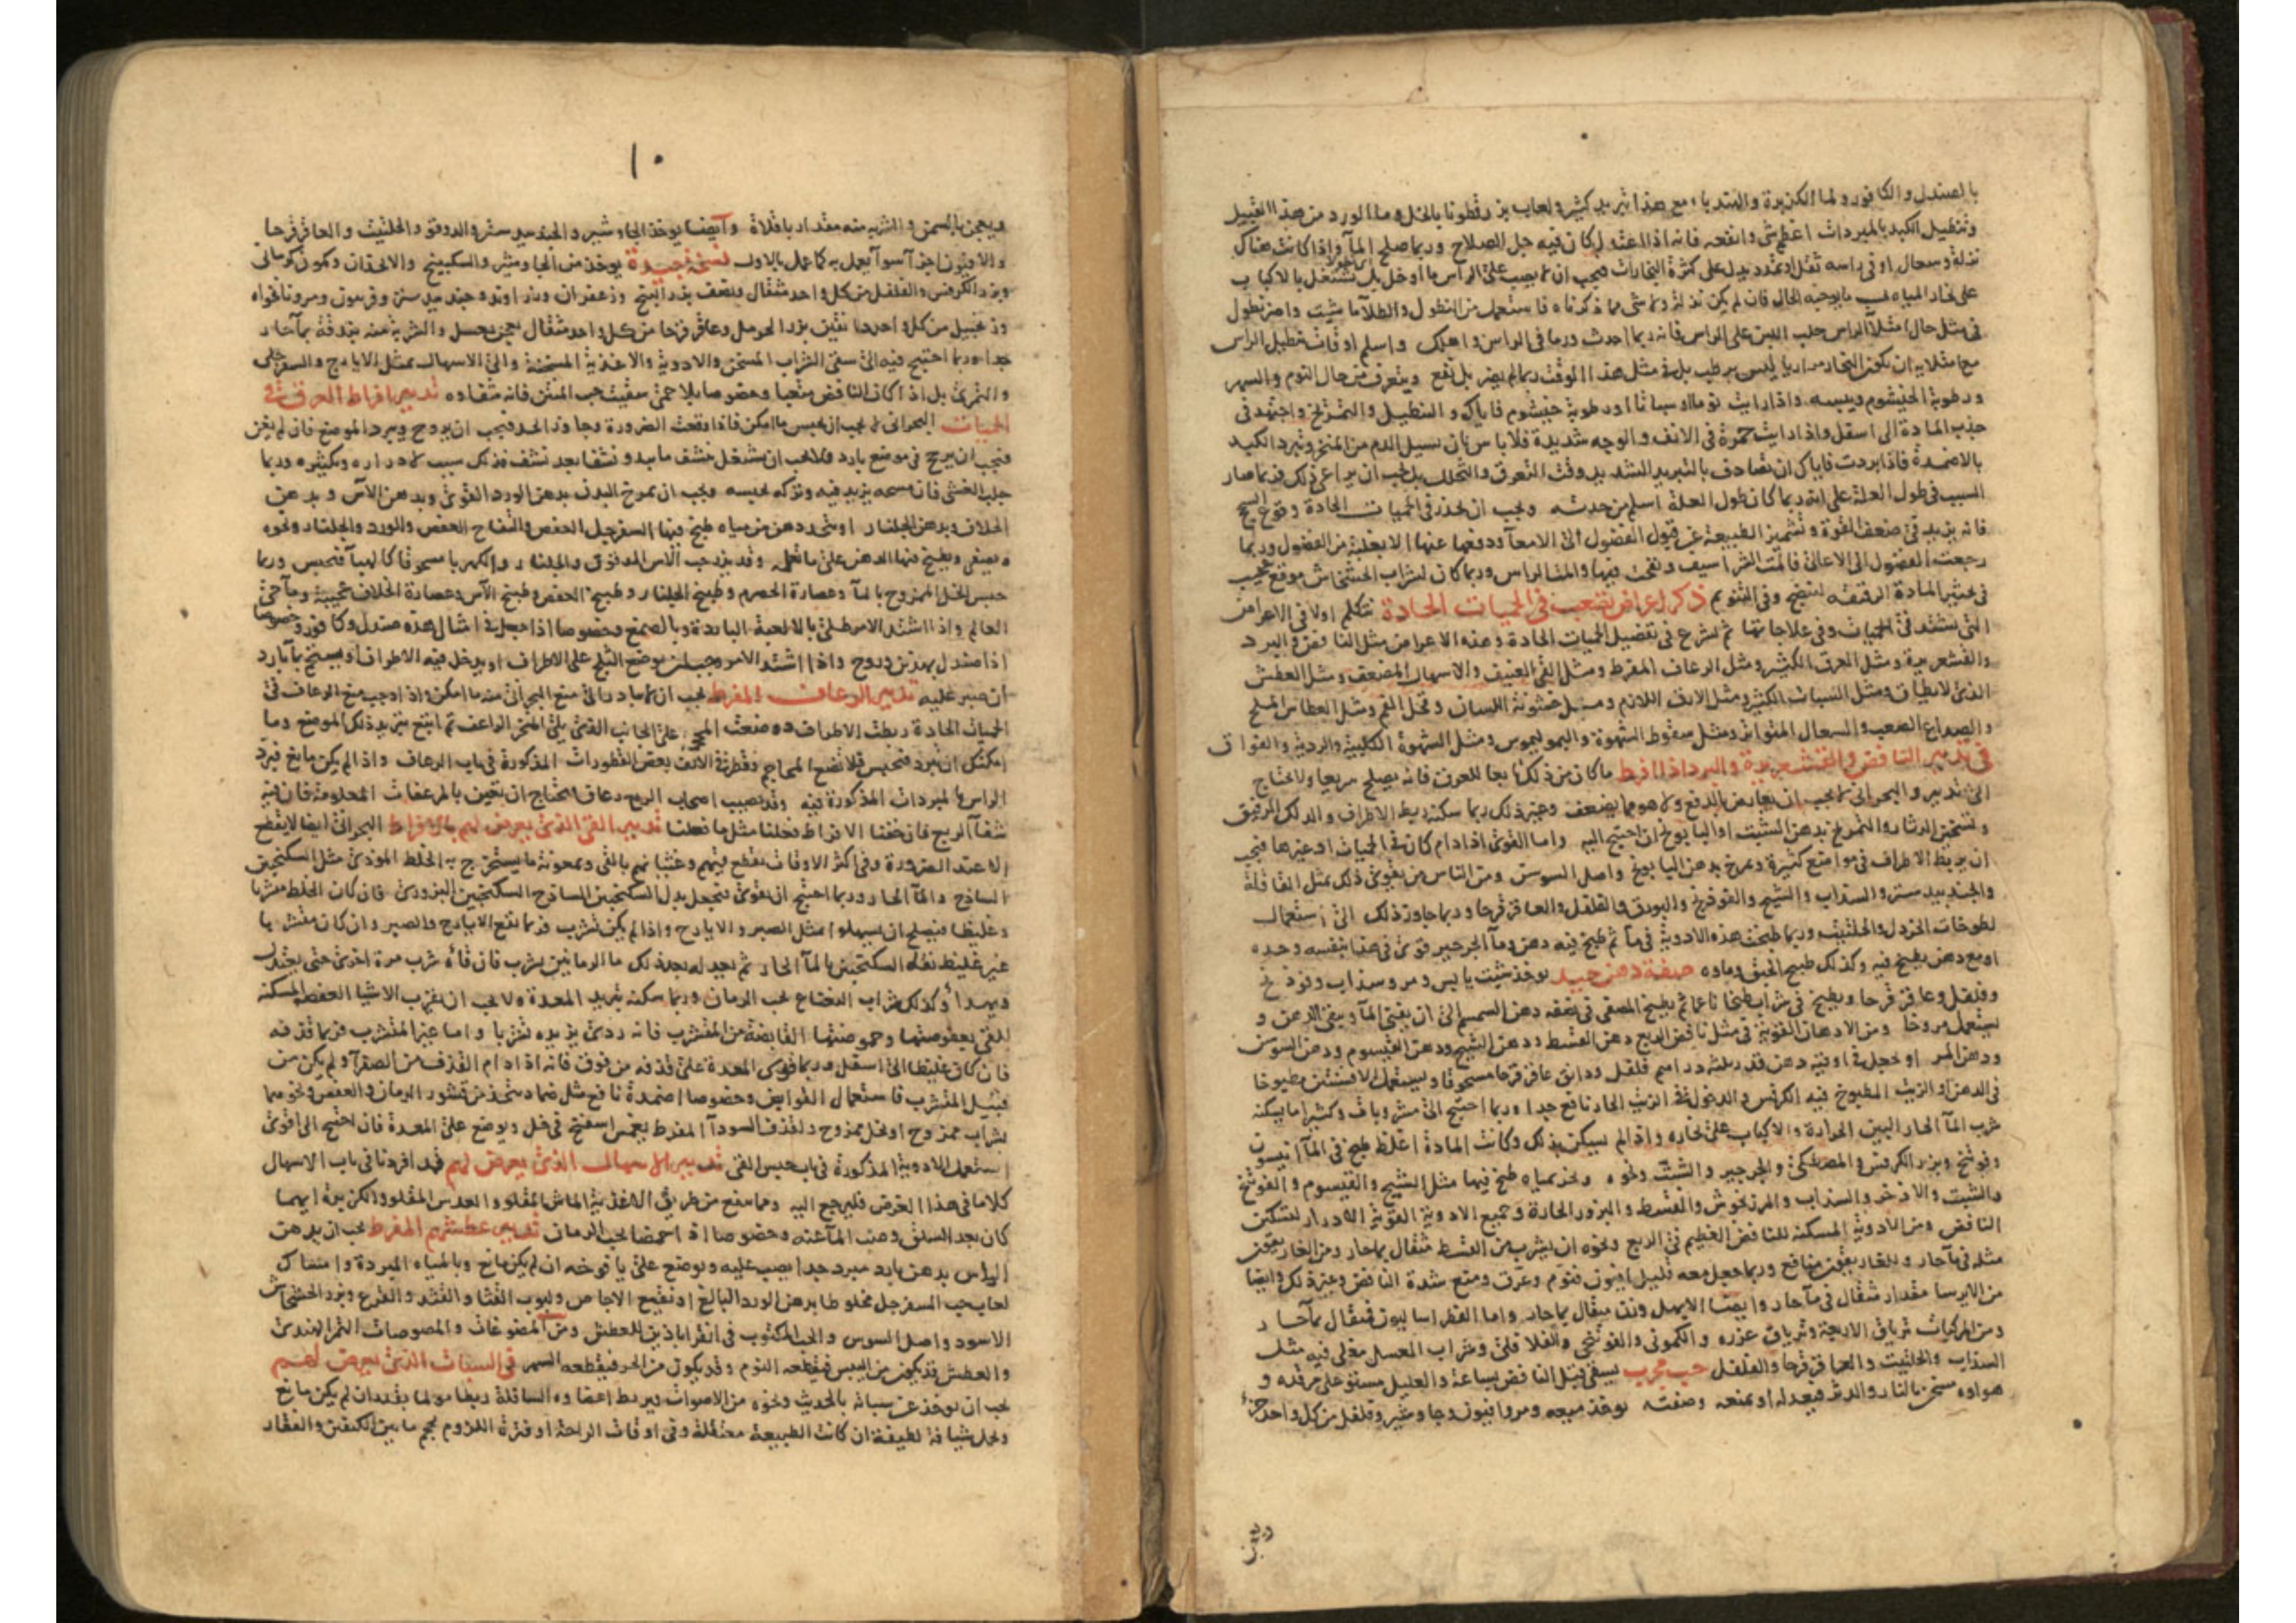 بالصندل والكافور ولما الكزبرة والهندباء مع هذا تبريد كثير ولعاب بزرقطونا بالخل وما الورد من هذا القبيل
وتنطيل الكبد بالمبردات اعظم شى وانفعه فانه اذا اعتدل كان فيه جل الصلاح وربما صلح المآ واذا كانت هناك
نزلة وسعال او فى راسه ثقل وتمدد يدل على كثرة البخارات فيجب ان لا يصب على الراس ما او خل بل تشتغل بالاكباب
على بخار المياه بما يوجبه الحال فان لم يكن نزلة ولا شى مما ذكرناه فاستعمل من النطول والطلا ما شيت واضر نطول
فى مثل حال امتلا الراس حلب اللبن على الراس فانه ربما احدث ورما فى الراس واهلك واسلم اوقات تنطيل الراس
مع امتلايه ان يكون البخار مراريا ليس برطب بل فى مثل هذا الوقت ربما لم يضر بل نفع ويتعرف من حال النوم والسهر
ورطوبة الخيشوم ويبسه واذا رايت نوما او سباتا او رطوبة خيشوم فاياك والتنطيل والتمريخ واجتهد فى
جذب المادة الى اسفل واذا رايت حمرة فى الانف والوجه شديدة فلا باس بان تسيل الدم من المنخر وتبرد الكبد
بالاضمدة فاذا بردت فاياك ان تصادف بالتبريد الشديد وقت التعرق والتحلل بل يجب ان يراعى ذلك فربما صار
السبب فى طول العلة على انه ربما كان طول العلة اسلم من حدته ويجب ان تحذر فى الحميات الحادة وقوع السحج
فانه يزيد فى ضعف القوة وتشمئز الطبيعة عن قبول الفضول الى الامعآ ودفعها عنها الا بغلبة من الفضول وربما
رجعت الفضول الى الاعالى فآلمت الشراسيف ونفخت فيها وآلمت الراس وربما كان لشراب الخشخاش موقع عجيب
فى تخثير المادة الرقيقة لتنضج وفى التنويم ذكر اعراض تصعب فى الحميات الحادة نتكلم اولا فى الاعراض
التى تشتد فى الحميات وفى علاجاتها ثم نشرع فى تفصيل الحميات الحادة وهذه الاعراض مثل النافض والبرد
والقشعريرة ومثل العرق الكثير ومثل الرعاف المفرط ومثل القى العنيف والاسهال المضعف ومثل العطش
الذى لا يطاق ومثل السبات الكثير ومثل الارق اللازم ومثل خشونة اللسان وقحل الفم ومثل العطاس الملح
والصداع الصعب والسعال المتواتر ومثل سقوط الشهوة والبوليموس ومثل الشهوة الكلبية والردية والفواق
فى تدبير النافض والقشعريرة والبرد اذا افرط ما كان من ذلك تابعا للعرق فانه يصلح سريعا ولا يحتاج
الى تدبير والبحرانى لا يجب ان يعارض بالدفع ولا هو مما يضعف وغير ذلك ربما سكنه ربط الاطراف والدلك الرفيق
وتسخين الدثار والتمريخ بدهن الشبث او البابونج ان احتيج اليه واما القوى اذا دام كان فى الحميات او غيرها فيجب
ان يربط الاطراف فى مواضع كثيرة وتمرخ بدهن البابونج واصل السوسن ومن الناس من يقوى ذلك بمثل القاقلة
والجندبيدستر والسذاب والشيح والفوذنج والبورق والفلفل والعاقرقرحا وربما جاوز ذلك الى استعمال
لطوخات الخردل والحلتيت وربما طبخت هذه الادوية فى مآ ثم طبخ فيه دهن ومآ الجرجير قوى فى هذا بنفسه وحده
او مع دهن يطبخ فيه وكذلك طبيخ الحبق ومآوه صفة دهن جيد يوخذ شبت يابس ومر وسذاب وفوذنج
وفلفل وعاقرقرحا ويطبخ فى شراب طبخا ناعما ثم يطبخ المصفى فى نصفه دهن السمسم الى ان يفنى المآ ويبقى الدهن و
يستعمل مروخا ومن الادهان القوية فى مثل نافض الربع دهن القسط ودهن الشيح ودهن القيسوم ودهن السوسن
ودهن المر او تجعل فى اوقية دهن قدر ثلثة دراهم فلفل ودانق عاقرقرحا مسحوقا ويستعمل الافسنتين مطبوخا
فى الدهن او الزيت المطبوخ فيه الكرفس والدخول فى الزيت الحار نافع جدا وربما احتيج الى مشروبات وكثيرا ما يسكنه
شرب المآ الحار البين الحرارة والاكباب على بخاره واذا لم يسكن بذلك وكانت المادة اغلظ طبخ فى المآ انيسون
وفوذنج وبزر الكرفس والمصطكى والجرجير والشبت ونحوه وبخر بمياه طبخ فيها مثل الشيح والقيسوم والفوذنج
والشبت والاذخر والسذاب والمرزنجوش والقسط والبزور الحارة وجميع الادوية القوية الادرار لتسكين
النافض ومن الادوية المسكنة للنافض العظيم فى الربع ونحوه ان يشرب من القسط مثقال بماحار ومن الغاريقون
مثله فى مآ حار والغاريقون نافع وربما جعل معه قليل افيون فنوم وعرق ومنع شدة النافض وغير ذلك وايضا
من الايرسا مقدار مثقال فى مآ حار وايضا الابهل وزن مثقال بماحار واما الفطراساليون فمثقال بمآ حار
ومن المركبات ترياق الاربعة وترياق عزره والكمونى والفوذنجى والفلافلى وشراب العسل مغلى فيه مثل
السذاب والحلتيت والعاقرقرحا والفلفل حب مجرب يسقى قبل النافض بساعة والعليل مستو على مرقده و
هواوه مسخن بالنار والدثر فيعدله او يمنعه وصفته يوخذ ميعه ومر وافيون وجاوشير وفلفل من كل واحد جزء
١٠
ويعجن بالسمن والشربه منه مقدار باقلاة وآيضا يوخذ الجاوشير والجندبيدستر والدوقو والحلتيت والعاقرقرحا
والافيون اجزآ سوآ يعمل به كما عمل بالاول نسخة جيدة يوخذ من الجاوشير والسكبينج والانجذان وكمون كرمانى
وبزر الكرفس والفلفل من كل واحد مثقال ونصف بزر البنج وزعفران وزراوند وجندبيدستر وفربيون ومر ونانخواه
وزنجبيل من كل واحد بزر الحرمل وعاقرقرحا من كل واحد مثقال يعجن بعسل والشربة منه بندقة بمآ حار
جدا وربما احتيج فيه الى سقى الشراب المسخن والادوية والاغذية المسخنة والى الاسهال بمثل الايارج والسفرجلى
والتمرى بل اذا كان النافض متعبا وخصوصا بلا حمى سقيت حب المنتن فانه شفاوه تدبير افراط العرق فى
الحميات البحرانى لا يجب ان يحبس ما امكن فاذا وقعت الضرورة وجاوز الحد فيجب ان يروح ويبرد الموضع فان لم يغن
فيجب ان يريح فى موضع بارد ولا يجب ان يشتغل بنشف ما يبدو نشفا بعد نشف فذلك سبب لادراره وتكثيره وربما
جلب الغشى فان مسحه يزيد فيه وتركه يحبسه ويجب ان يمرخ البدن بدهن الورد القوى وبدهن الآس وبدهن
الخلاف وبدهن الجلنار او يتخذ دهن من مياه طبخ فيها السفرجل العفص والتفاح العفص والورد والجلنار ونحوه
ويصفى ويطبخ فيها الدهن على ما تعلم وقد يذر حب الآس المدقوق والجلنار والكهربا مسحوقا كالهبآ فيحبس وربما
حبس الخل الممزوج بالمآ وعصارة الحصرم وطبيخ الجلنار وطبيخ العفص وطبيخ الآس وعصارة الخلاف عجيبة ومآ حى
العالم واذا اشتد الامر طلى بالالعبة الباردة وبالصمغ وخصوصا اذا جعل فى امثال هذه صندل وكافور وخصوصا
اذا صندل بهذين وروح واذا اشتد الامر وجب ان يوضع الثلج على الاطراف او يدخل فيه الاطراف او يستحم بمآ بارد
ان صبر عليه تدبير الرعاف المفرط يجب ان لا يبادر الى منع البحرانى منه ما امكن واذا وجب منع الرعاف فى
الحميات الحادة ربطت الاطراف ووضعت المحجمة على الجانب الذى يلى المنخر الراعف ثم اتبع بتبريد ذلك الموضع وما
امكنك ان تبرد فتحبس فلا تضع المحاجم وقطر فى الانف بعض القطورات المذكورة فى باب الرعاف واذا لم يكن مانع فبرد
الراس بالمبردات المذكورة فيه وقد يصيب اصحاب الربع رعاف فيحتاج ان يعين بالمرعفات المعلومة فان فيه
شفآ الربع فان خفنا الافراط فعلنا مثل ما فعلنا تدبير القى الذى يعرض لهم بالافراط البحرانى ايضا لا يقطع
الا عند الضرورة وفى اكثر الاوقات يقطع قيهم وغثيانهم بالقى ومعونة ما يستخرج به الخلط الموذى مثل السكنجبين
الساذج والمآ الحار وربما احتيج ان يقوى فتجعل بدل السكنجبين الساذج السكنجبين البزورى فان كان الخلط متشربا
وغليظا فيصلح ان يسهلوا بمثل الصبر والايارج واذا لم يكن تشرب فربما نفع الايارج والصبر وان كان متشربا
غير غليظ نفعه السكنجبين بالمآ الحار ثم يعدله بعد ذلك ما الرمانين يشرب فان قآه شرب مرة اخرى حتى يعتدل
ويهدأ وكذلك شراب النعناع بحب الرمان وربما سكنه تبريد المعدة ولا يجب ان يقرب الاشيا العفصة المسكنه
للقى بعفوصتها وحموضتها القابضة من المتشرب فانه ردى يزيده تشربا واما غير المتشرب فربما قذفه
فان كان غليظا الى اسفل وربما قوى المعدة على قذفه من فوق فانه اذا دام القذف من الصفرآ ولم يكن من
قبيل المتشرب فاستعمال القوابض وخصوصا اضمدة نافع مثل ضماد يتخذ من قشور الرمان والعفص ونحو مما
بشراب ممزوج او بخل ممزوج ولقذف السودآ المفرط يغمس اسفنج فى خل ويوضع على المعدة فان احتيج الى اقوى
استعمل الادوية المذكورة فى باب حبس القى تدبير الاسهال الذى يعرض لهم قد افردنا فى باب الاسهال
كلاما فى هذا الغرض فليرجع اليه ومما ينفع من طريق الاغذية الماش المقلو والعدس المقلو والكزبرة ايهما
كان بعد السلق وصب المآ عنه وخصوصا اذا حمضا بحب الرمان تدبير عطشهم المفرط يجب ان يدهن
الراس بدهن بارد مبرد جدا يصب عليه ويوضع على يافوخه ان لم يكن مانع وبالمياه المبردة وامتصاك
لعاب حب السفرجل مخلوطا بدهن الورد البالغ او نقيع الاجاص ولبوب القثا والقثد والقرع وبزر الخشخاش
الاسود واصل السوس والحب المكتوب فى اقراباذين للعطش ومن المضوغات والمصوصات التمر الهندى
والعطش قد يكون من اليبس فيقطعه النوم وقد يكون من الحر فيقطعه السهر فى السبات الذى يعرض لهم
يجب ان يوخذ عن سباته بالحديث ونحوه من الاصوات ويربط اعضاوه السافلة ربطا مولما بقدر ان لم يكن مانع
وتحمل شيافة لطيفة ان كانت الطبيعة معتقلة وفى اوقات الراحة او فترة اللزوم تحجم ما بين الكتفين والفقار